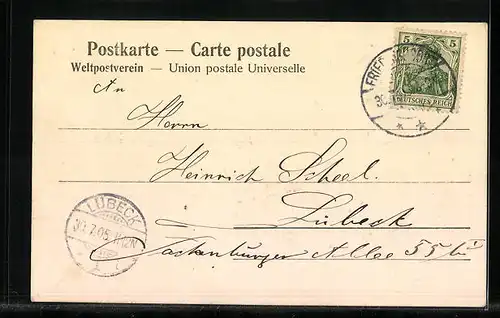 Postkarte — Carte postale
Weltpostverein — Union postale Universelle
5 5
DEUTSCHES REICH
An
Herrn
Heinrich Scheel.
Lübeck
LÜBECK
30.7.05.
Fackenburger Allee 55 b I